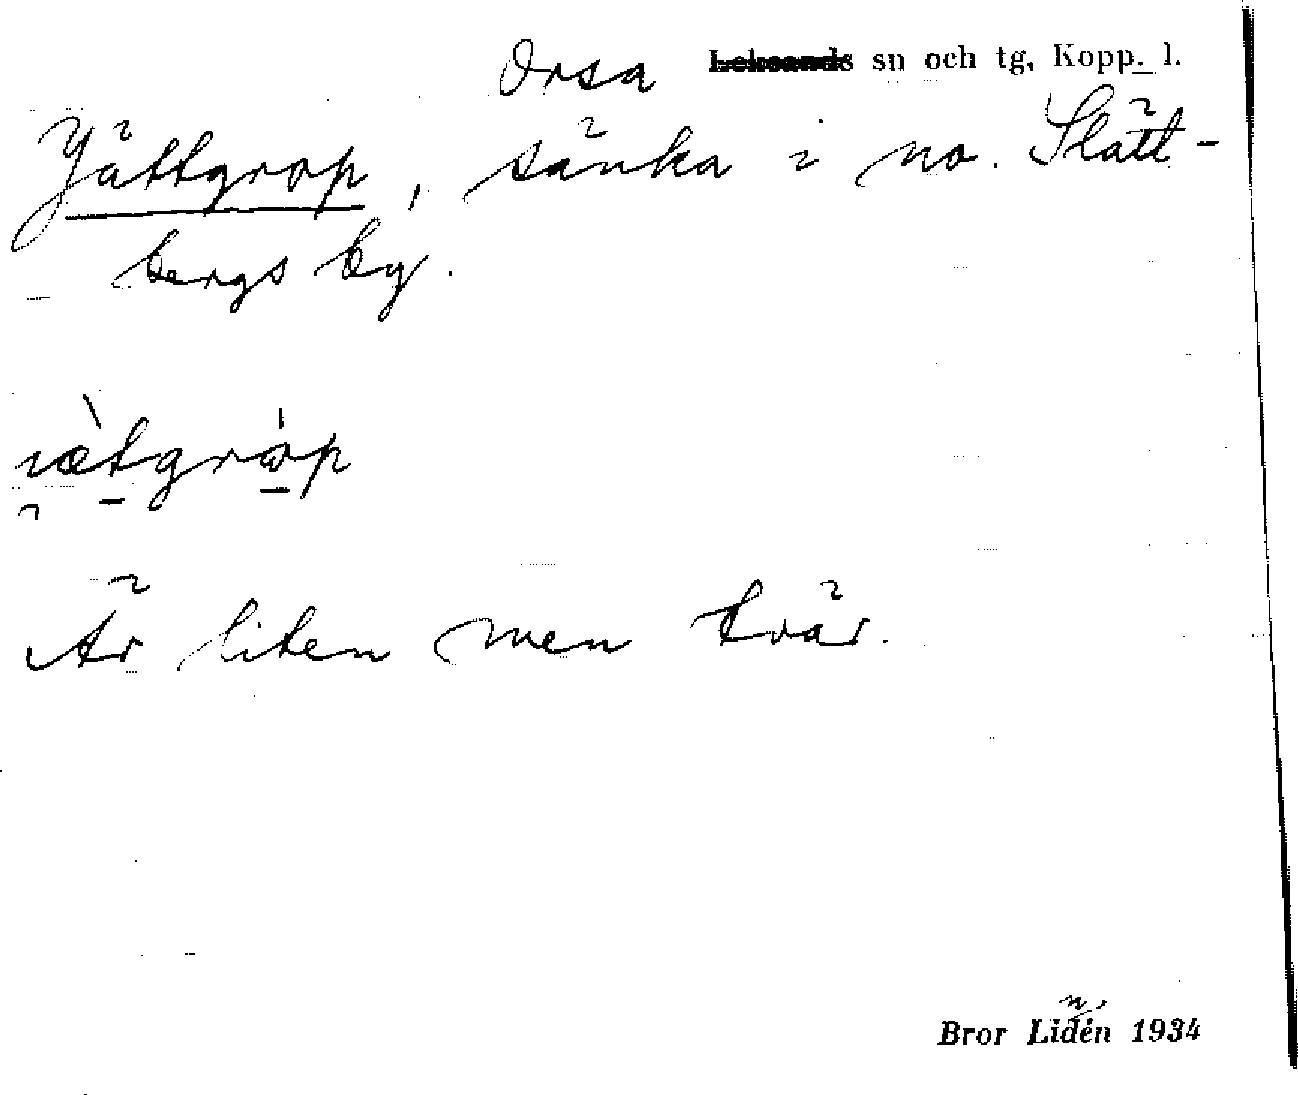 Orsa sn och tg, Kopp. l.
Jättgrop, sänka i no. Slätt-
bergs by.
Är liten men tvär.
Bror Lidén 1934